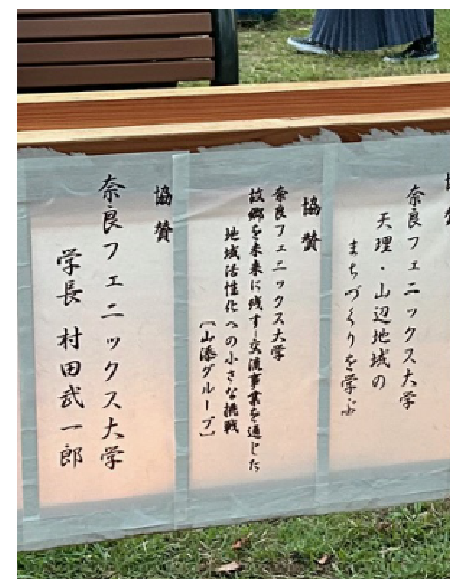 協賛
奈良フェニックス大学
天理・山辺地域の
まちづくりを学ぶ
協賛
奈良フェニックス大学
故郷を未来に残す交流事業を通じた
地域活性化への小さな挑戦
【山添グループ】
協賛
奈良フェニックス大学
学長 村田武一郎